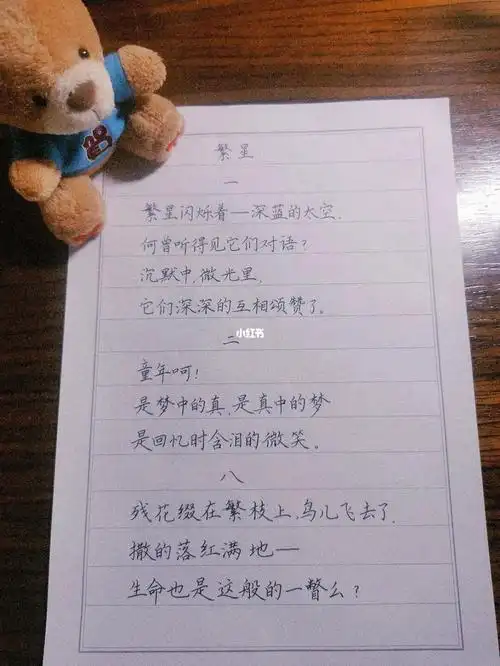 繁星
一
繁星闪烁着—深蓝的太空,
何曾听得见它们对语?
沉默中,微光里,
它们深深的互相颂赞了。
小红书
二
童年呵!
是梦中的真,是真中的梦
是回忆时含泪的微笑。
八
残花缀在繁枝上,鸟儿飞去了,
撒的落红满地—
生命也是这般的一瞥么?